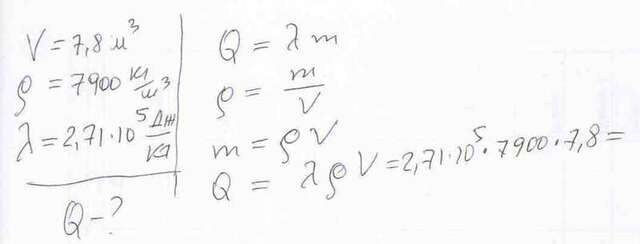 V = 7,8 м³
ρ = 7900 кг/м³
λ = 2,71·10⁵ Дж/кг
Q – ?
Q = λ m
ρ = m/V
m = ρ V
Q = λ ρ V = 2,71·10⁵·7900·7,8 =